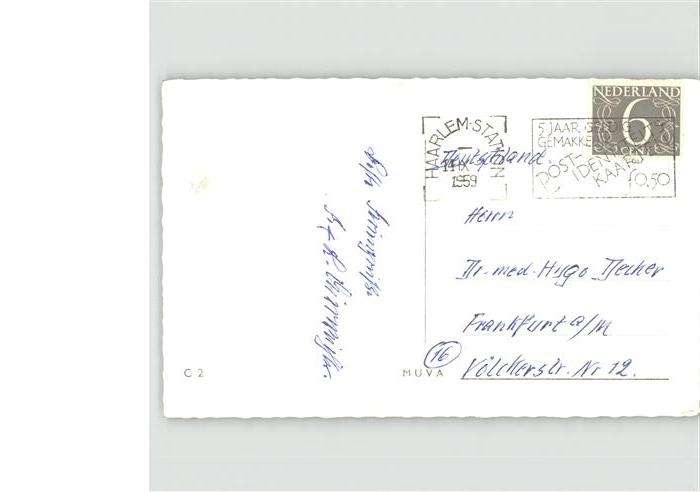 NEDERLAND
6
CENT
HAARLEM-STATION
14 IX
1959
5 JAAR GELDIG
GEMAKKE
POST-
IDEN
KAART
f 0.50
Deutschland.
Herrn
Dr. med. Hugo Decher
Frankfurt a/M
16
Völckerstr. Nr 12.
C 2
MUVA